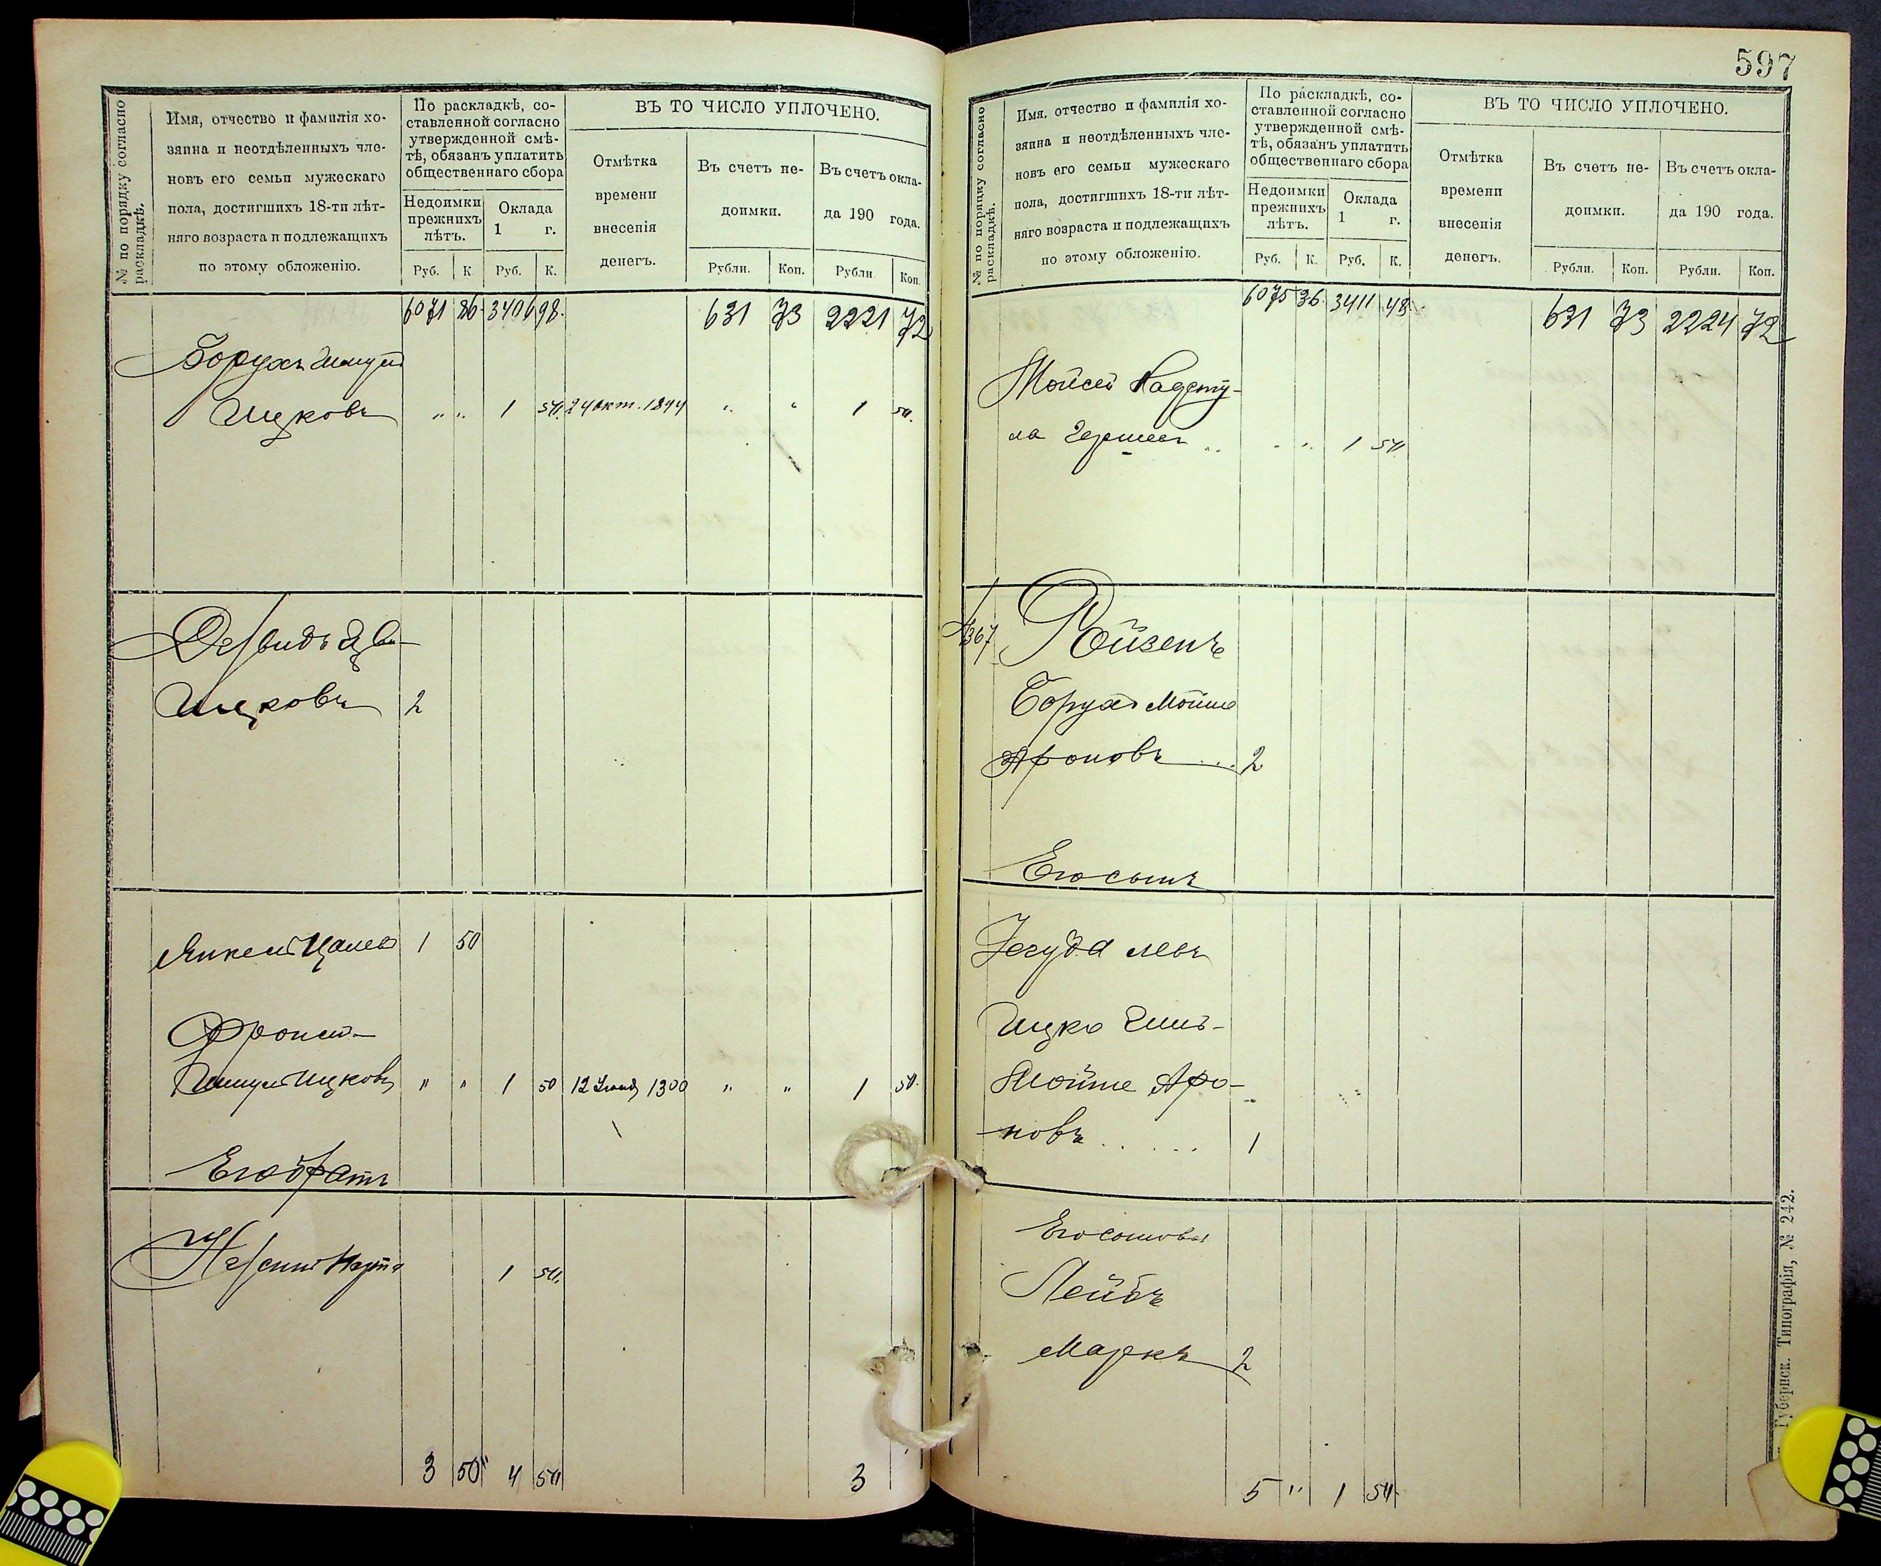 № по порядку согласно раскладкѣ.
Имя, отчество и фамилія хо-
зяина и неотдѣленныхъ чле-
новъ его семьи мужескаго
пола, достигшихъ 18-ти лѣт-
няго возраста и подлежащихъ
по этому обложенію.
По раскладкѣ, со-
ставленной согласно
утвержденной смѣ-
тѣ, обязанъ уплатить
общественнаго сбора
Недоимки
прежнихъ
лѣтъ.
Оклада
1 г.
Руб. К. Руб. К.
ВЪ ТО ЧИСЛО УПЛОЧЕНО.
Отмѣтка
времени
внесенія
денегъ.
Въ счетъ не-
доимки.
Въ счетъ окла-
да 190 года.
Рубли. Коп. Рубли Коп.
6071 86 3406 98 631 73 2221 72
Борухъ
Ицковъ " " 1 50 24 окт. 1899 " " 1 50
Ицковъ 2
Янкель 1 50
Ицковъ " " 1 50 12 1900 " " 1 50
Его братъ
1 50
3 50 4 50 3
597
№ по порядку согласно раскладкѣ.
Имя, отчество и фамилія хо-
зяина и неотдѣленныхъ чле-
новъ его семьи мужескаго
пола, достигшихъ 18-ти лѣт-
няго возраста и подлежащихъ
по этому обложенію.
По раскладкѣ, со-
ставленной согласно
утвержденной смѣ-
тѣ, обязанъ уплатить
общественнаго сбора
Недоимки
прежнихъ
лѣтъ.
Оклада
1 г.
Руб. К. Руб. К.
ВЪ ТО ЧИСЛО УПЛОЧЕНО.
Отмѣтка
времени
внесенія
денегъ.
Въ счетъ не-
доимки.
Въ счетъ окла-
да 190 года.
Рубли. Коп. Рубли. Коп.
6075 36 3411 48 631 73 2224 72
Мойсей
" " 1 50
367 Ройзенъ
Борухъ Мойше
Ароновъ 2
Его сынъ
Іегуда
Ицко
Мойше Аро-
новъ 1
Его сыновья
Лейбъ
Маркъ 2
5 " 1 50
Губернск. Типографія, № 242.